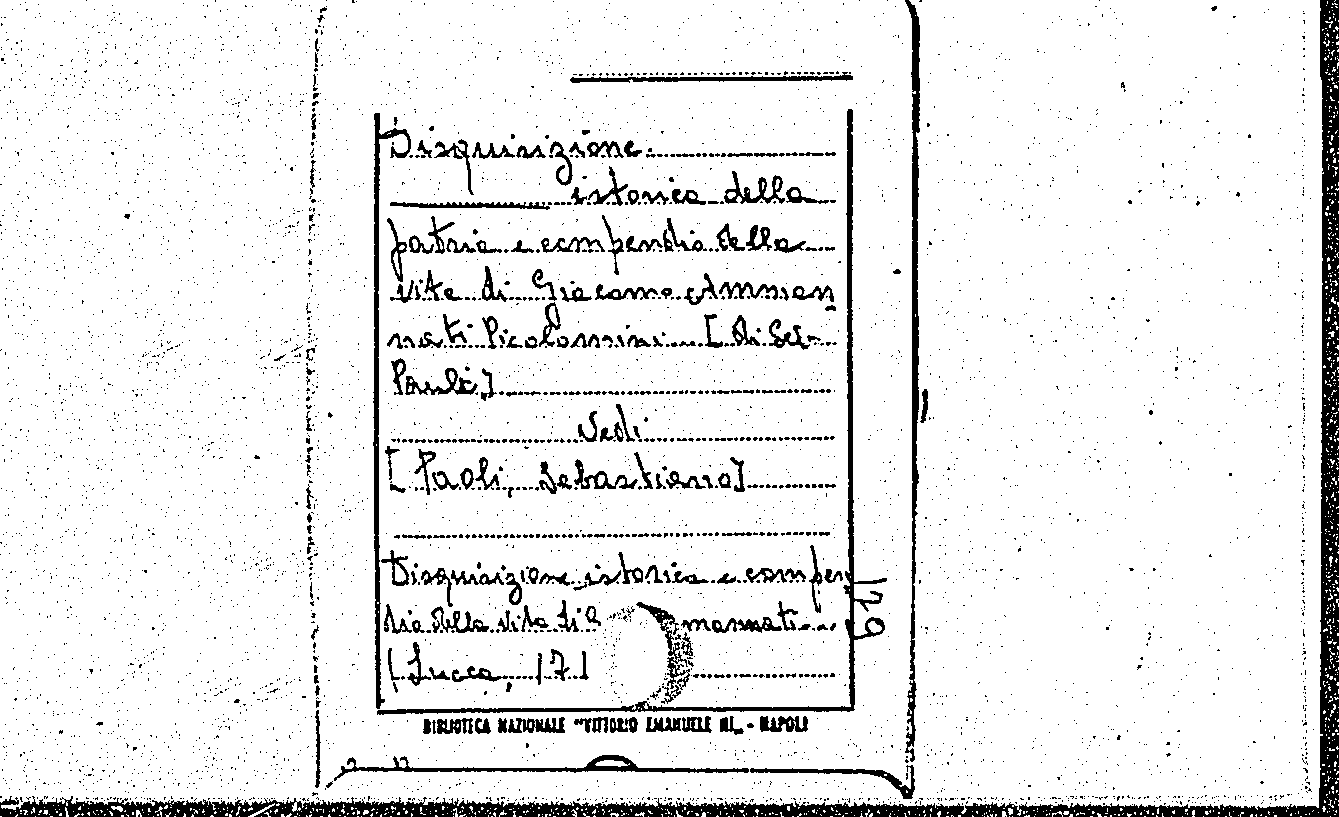 Disquisizione.
istorica della
patria e compendio della
vita di Giacomo Amman
nati Picolomini [di Seb.
Pauli]
Vedi
[Paoli, Sebastiano]
Disquisizione istorica e compen
dio della vita di G mannati
(Lucca, 171
129
BIBLIOTECA NAZIONALE "VITTORIO EMANUELE III„ - NAPOLI